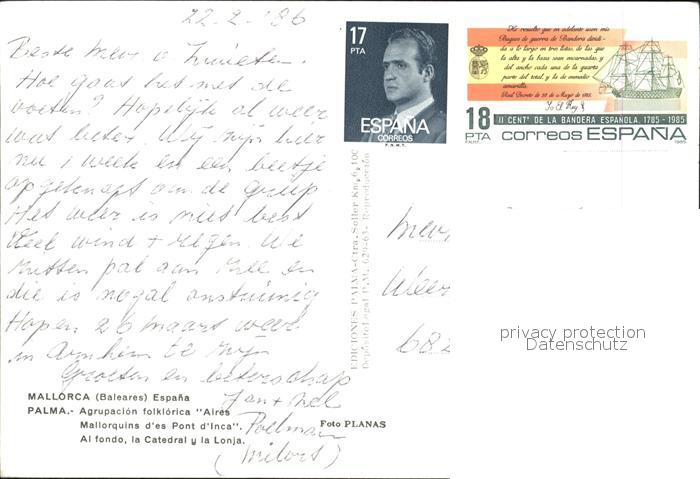 22-2-'86
Beste Mevr v.
Hoe gaat het met de
voeten? Hopelijk al weer
wat beter. Wij zijn hier
nu 1 week en een beetje
opgeknapt van de griep.
Het weer is niet best
Veel wind + regen. We
zitten pal aan zee en
die is nogal onstuimig
Hopen 26 maart weer
in Arnhem te zijn
Groeten en beterschap
Jan + Nel
Poelman
17
PTA
ESPAÑA
CORREOS
F.N.M.T.
Ha resuelto que en adelante usen mis
Buques de guerra de Bandera dividi-
da a lo largo en tres listas, de las que
la alta y la baxa sean encarnadas, y
del ancho cada una de la quarta
parte del total, y la de enmedio
amarilla.
Real Decreto de 28 de Mayo de 1785.
Yo El Rey
18
PTA
II CENTº DE LA BANDERA ESPAÑOLA. 1785-1985
correos ESPAÑA
F.N.M.T.
1985
EDICIONES PALMA-Ctra. Soller Km, 6,100
Depósito Legal P.M. 629-63- Reproducción
Mevr.
682
privacy protection
Datenschutz
MALLORCA (Baleares) España
PALMA.- Agrupación folklórica "Aires
Mallorquins d'es Pont d'Inca".
Al fondo, la Catedral y la Lonja.
Foto PLANAS